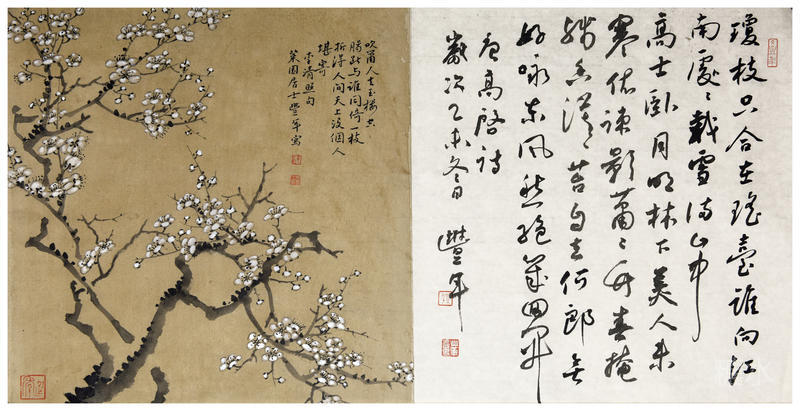 瓊枝只合在瑤臺誰向江
南處〻栽雪滿山中
高士卧月明林下美人来
寒依疎影蕭〻竹春掩
殘香漠〻苔自去何郎無
好咏東風愁絕幾回開
高啓詩
歲次乙未冬日 豐年
吹簫人去玉樓空
腸斷與誰同倚一枝
折得人間天上没個人
堪寄
李清照句
菜園居士豐年寫